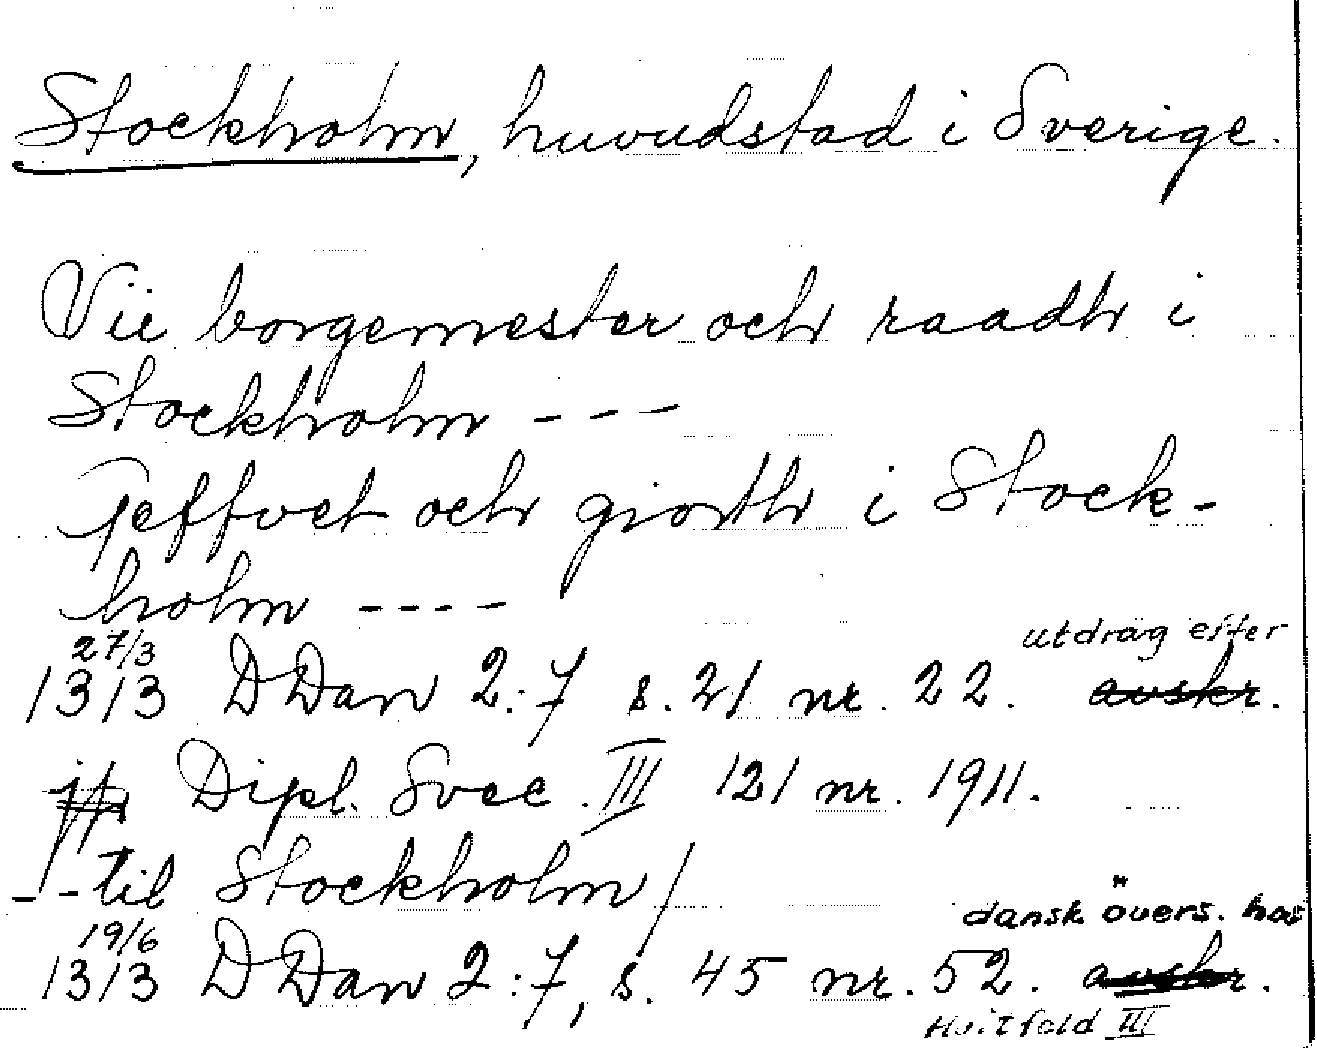 Stockholm, huvudstad i Sverige.
Vii borgemester och raadh i
Stockholm - - -
geffvet och giordh i Stock-
holm - - - -
27/3 utdrag efter
1313 DDan 2:7 s. 21 nr. 22. avskr.
Dipl. Svec. III 121 nr. 1911.
- - til Stockholm/
19/6 dansk övers. hos
1313 DDan 2:7, s. 45 nr. 52. avskr.
Huitfeld III